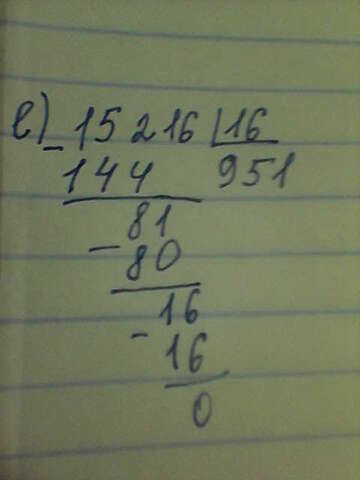 е) - 15 216 | 16
144 951
81
- 80
16
- 16
0